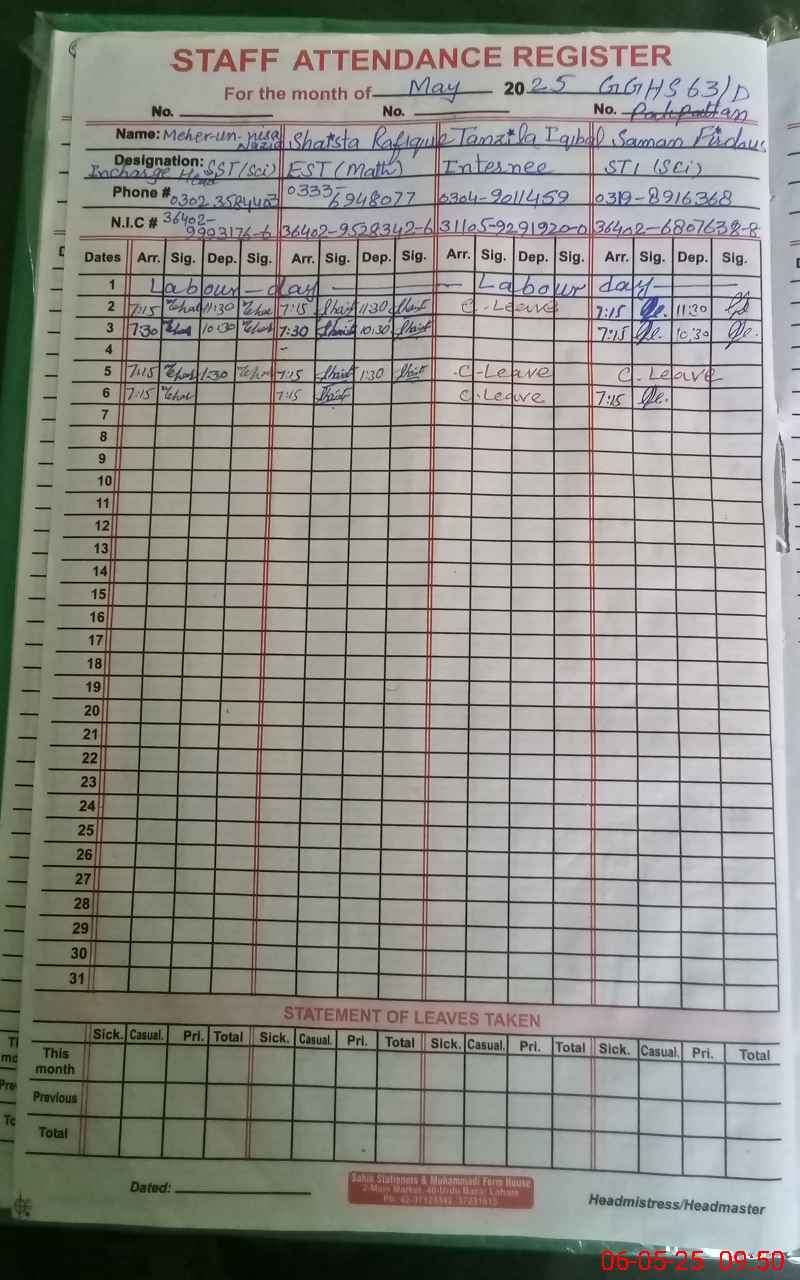 STAFF ATTENDANCE REGISTER
For the month of May 2025 GGHS 63/D
No. No. No. Pakpattan
Name: Meher-un-nisa Nazir Shaista Rafique Tanzila Iqbal Saman Firdous
Designation: SST(Sci) EST (Math) Internee STI (Sci)
Incharge Head
Phone # 0302 3584403 0333-6948077 0304-9011459 0319-8916368
N.I.C # 36402-9903176-6 36402-9538342-6 31105-9291920-0 36402-6807638-8
Dates Arr. Sig. Dep. Sig. Arr. Sig. Dep. Sig. Arr. Sig. Dep. Sig. Arr. Sig. Dep. Sig.
1 Labour day Labour day
2 7:15 11:30 7:15 11:30 C-Leave 7:15 11:30
3 7:30 10:30 7:30 10:30 7:15 10:30
4 -
5 7:15 1:30 7:15 1:30 C-Leave C.Leave
6 7:15 7:15 C.Leave 7:15
7
8
9
10
11
12
13
14
15
16
17
18
19
20
21
22
23
24
25
26
27
28
29
30
31
STATEMENT OF LEAVES TAKEN
Sick. Casual. Pri. Total Sick. Casual. Pri. Total Sick. Casual. Pri. Total Sick. Casual. Pri. Total
This month
Previous
Total
Dated:
Sahik Stationers & Muhammadi Form House
2-Main Market, 40-Urdu Bazar Lahore
Headmistress/Headmaster
06-05-25 09:50